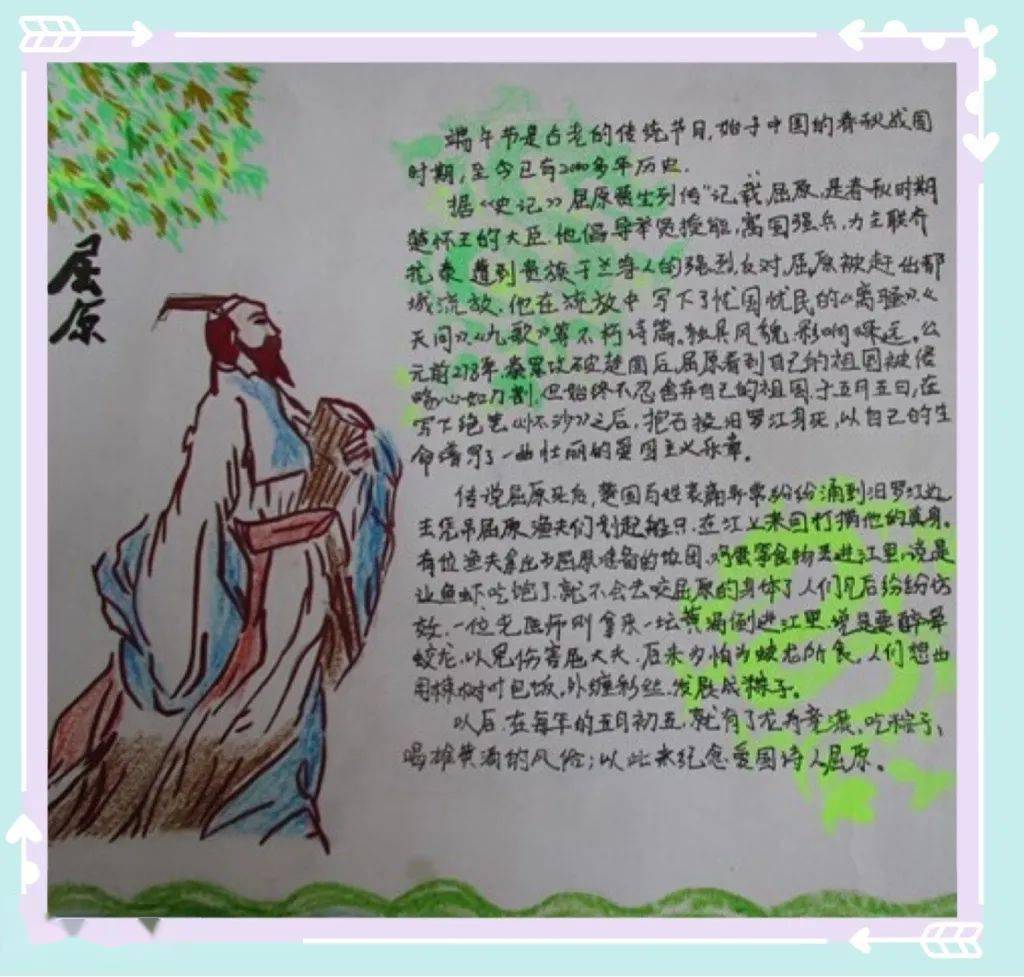 屈原
端午节是古老的传统节日,始于中国的春秋战国
时期,至今已有2000多年历史.
据《史记》屈原贾生列传"记载,屈原,是春秋时期
楚怀王的大臣.他倡导举贤授能,富国强兵,力主联齐
抗秦.遭到贵族子兰等人的强烈反对,屈原被赶出都
城流放.他在流放中写下了忧国忧民的《离骚》.《
天问》.《九歌》等不朽诗篇.独具风貌.影响深远.公
元前278年.秦军攻破楚国后,屈原看到自己的祖国被侵
略心如刀割,但始终不忍舍弃自己的祖国.于五月五日,在
写下绝笔《怀沙》之后,抱石投汨罗江身死,以自己的生
命谱写了一曲壮丽的爱国主义乐章。
传说屈原死后,楚国百姓哀痛异常纷纷涌到汨罗江边
去凭吊屈原.渔夫们划起船只.在江上来回打捞他的真身。
有位渔夫拿出为屈原准备的饭团.鸡蛋等食物丢进江里.说是
让鱼虾吃饱了.就不会去咬屈原的身体了人们见后纷纷仿
效.一位老医师则拿来一坛黄酒倒进江里.说是要醉晕
蛟龙.以免伤害屈大夫.后来为怕为蛟龙所食.人们想出
用楝树叶包饭,外缠彩丝.发展成粽子。
以后.在每年的五月初五.就有了龙舟竞渡、吃粽子、
喝雄黄酒的风俗;以此来纪念爱国诗人屈原。